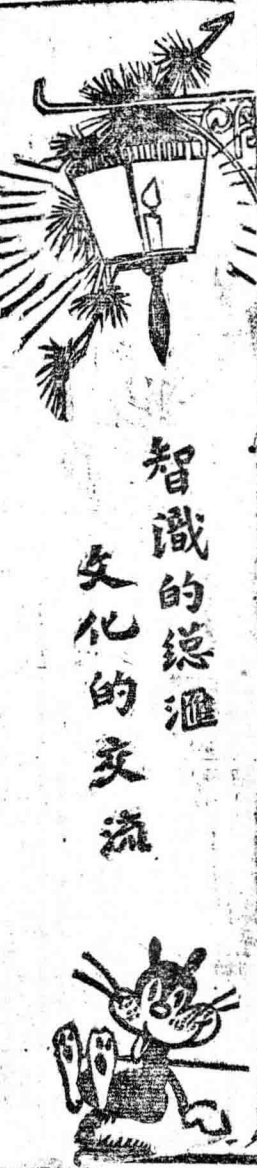 智識的總滙
文化的交流